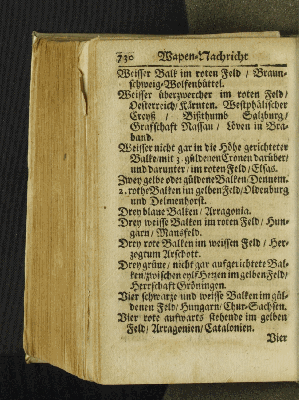 730 Wapen-Nachricht
Weisser Balk im roten Feld / Braun-
schweig-Wolfenbüttel.
Weisser überzwercher im roten Feld/
Oesterreich/ Kärnten. Westphälischer
Creyß / Bißthumb Salzburg/
Grafschafft Nassau / Löven in Bra-
band.
Weisser nicht gar in die Höhe gerichteter
Balke/mit 3. güldenen Cronen darüber/
und darunter / im roten Feld/ Elsas.
Zwey gelbe oder güldene Balken/
2. rothe Balken im gelben Feld/Oldenburg
und Delmenhorst.
Drey blaue Balken / Arragonia.
Drey weisse Balken im roten Feld/ Hun-
garn / Mansfeld.
Drey rote Balken im weissen Feld / Her-
zogtum Arschott.
Drey grüne/ nicht gar aufgerichtete Bal-
ken/zwischen im gelben Feld/
Herrschafft Gröningen.
Vier schwarze und weisse Balken im gül-
denen Feld/ Hungarn/ Chur-Sachsen.
Vier rote aufwarts stehende im gelben
Feld/ Arragonien/Catalonien.
Vier